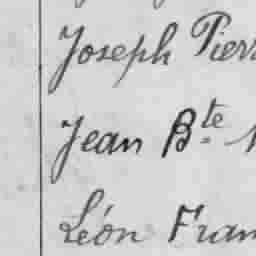 Joseph Pierr
Jean Bte
Léon Fran